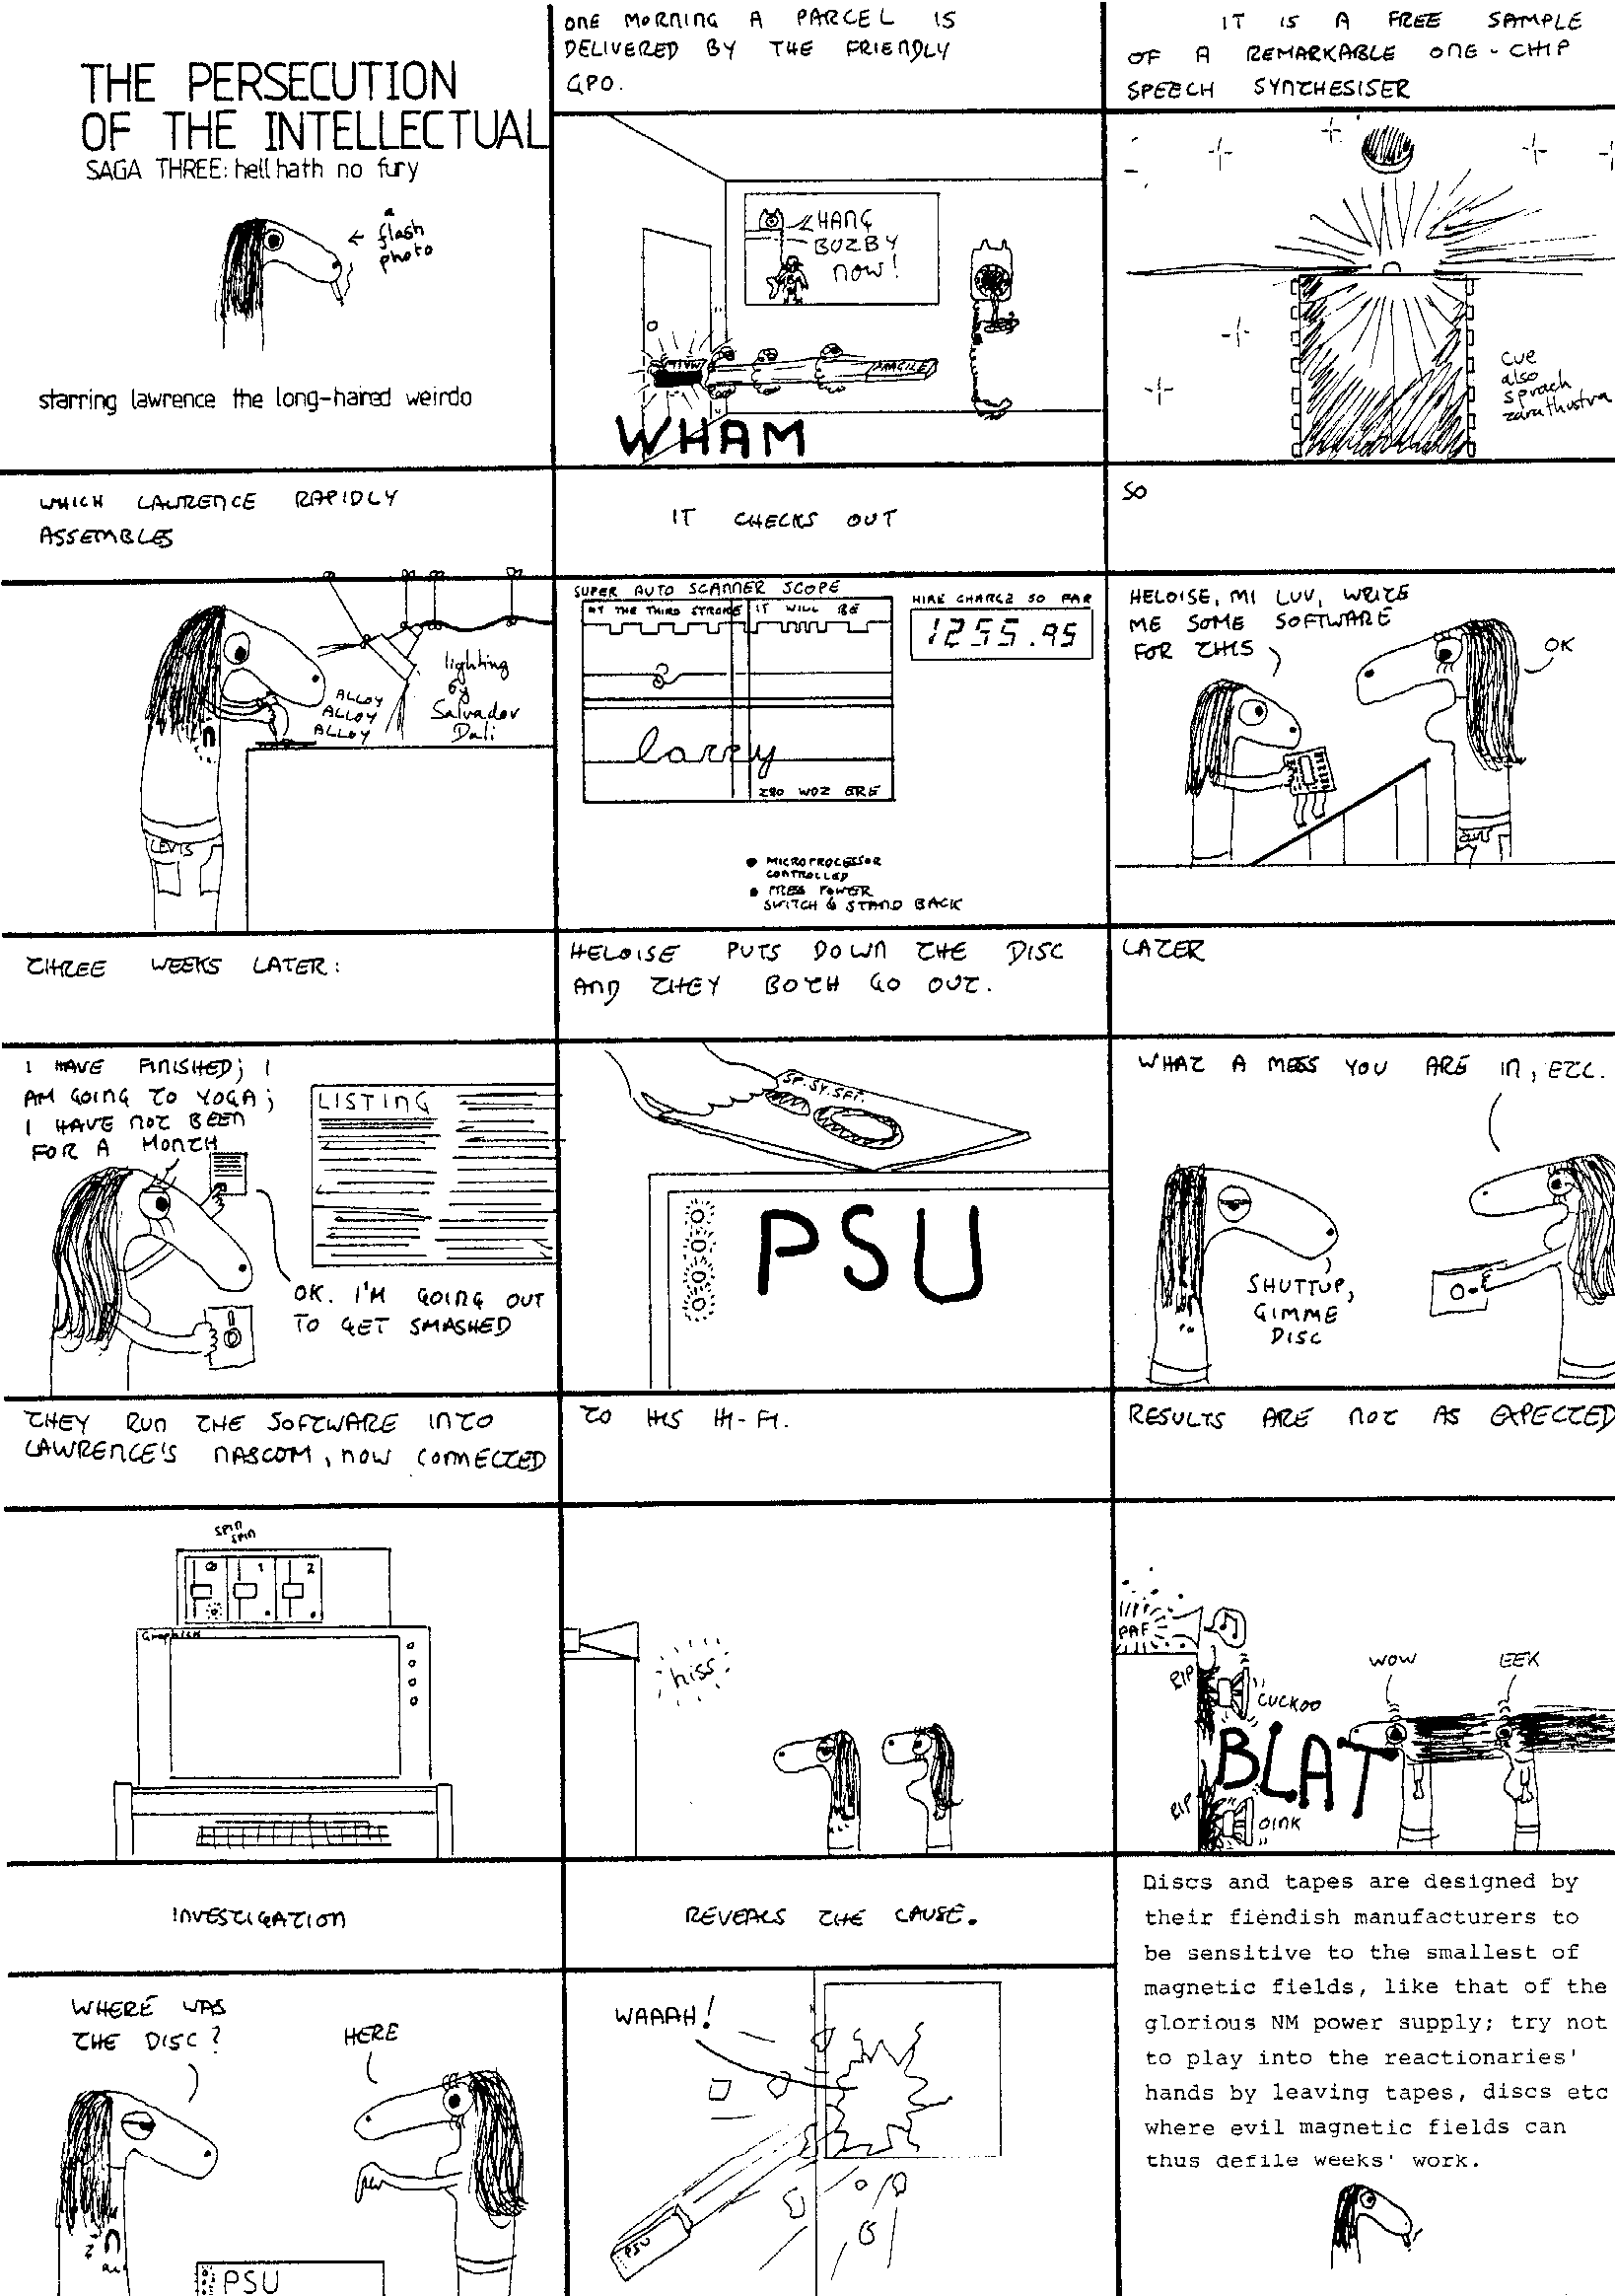 THE PERSECUTION
OF THE INTELLECTUAL
SAGA THREE: hell hath no fury
a
flash
photo
starring lawrence the long-haired weirdo
ONE MORNING A PARCEL IS
DELIVERED BY THE FRIENDLY
GPO.
HANG
BUZBY
NOW!
FRAGILE
WHAM
IT IS A FREE SAMPLE
OF A REMARKABLE ONE-CHIP
SPEECH SYNTHESISER
cue
also
sprach
zarathustra
WHICH LAWRENCE RAPIDLY
ASSEMBLES
ALLOY
ALLOY
ALLOY
lighting
by
Salvador
Dali
LEVIS
IT CHECKS OUT
SUPER AUTO SCANNER SCOPE
AT THE THIRD STROKE IT WILL BE
HIRE CHARGE SO FAR
1255.95
larry
Z80 WOZ ERE
MICROPROCESSOR
CONTROLLED
PRESS POWER
SWITCH & STAND BACK
SO
HELOISE, MI LUV, WRITE
ME SOME SOFTWARE
FOR THIS
OK
THREE WEEKS LATER:
I HAVE FINISHED; I
AM GOING TO YOGA;
I HAVE NOT BEEN
FOR A MONTH
LISTING
OK. I'M GOING OUT
TO GET SMASHED
HELOISE PUTS DOWN THE DISC
AND THEY BOTH GO OUT.
SP. SY. SFT.
PSU
LATER
WHAT A MESS YOU ARE IN, ETC.
SHUTTUP,
GIMME
DISC
THEY RUN THE SOFTWARE INTO
LAWRENCE'S NASCOM, NOW CONNECTED
SPIN
SPIN
0 1 2
TO HIS HI-FI.
hiss
RESULTS ARE NOT AS EXPECTED
PAF
RIP
CUCKOO
WOW
EEK
BLAT
RIP
OINK
INVESTIGATION
WHERE WAS
THE DISC?
HERE
PSU
REVEALS THE CAUSE.
WAAAH!
PSU
Discs and tapes are designed by
their fiendish manufacturers to
be sensitive to the smallest of
magnetic fields, like that of the
glorious NM power supply; try not
to play into the reactionaries'
hands by leaving tapes, discs etc
where evil magnetic fields can
thus defile weeks' work.